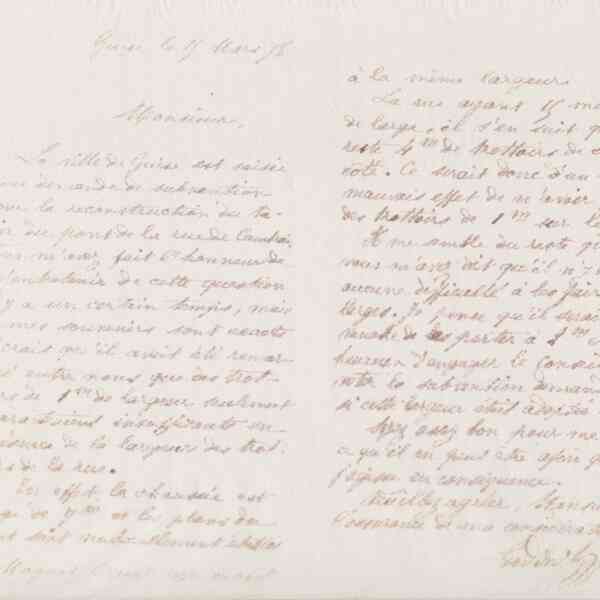 Guise le 15 Mars 78
Monsieur,
La ville de Guise est saisie
une demande de subvention
our la reconstruction du ta-
ier du pont de la rue de Cambrai
ous m'avez fait l'honneur de
m'entretenir de cette question
y a un certain temps, mais
mes souvenirs sont exacts
crois qu'il avait été remar-
é entre nous que des trot-
rs de 1m de largeur seulement
araitraient insuffisants en
sence de la largeur des trot-
rs de la rue.
En effet la chaussée est
que 7m et les plans du
ont naturellement établis
à la même largeur.
La rue ayant 15 m
de large, il s'en suit q
reste 4m de trottoirs de c
côté. Ce serait donc d'un
mauvais effet de n'avoir
des trottoirs de 1m sur le
Il me semble du reste qu
vous m'avez dit qu'il n'y
aucune difficulté à les fair
larges. Je pense qu'il serait
de les porter à 2m
heureux d'engager le Conseil
voter la subvention demand
si cette largeur était adoptée
Soyez assez bon pour me
ce qu'il en peut être afin q
j'agisse en conséquence.
Veuillez agréer, Monsieu
l'assurance de ma considérat